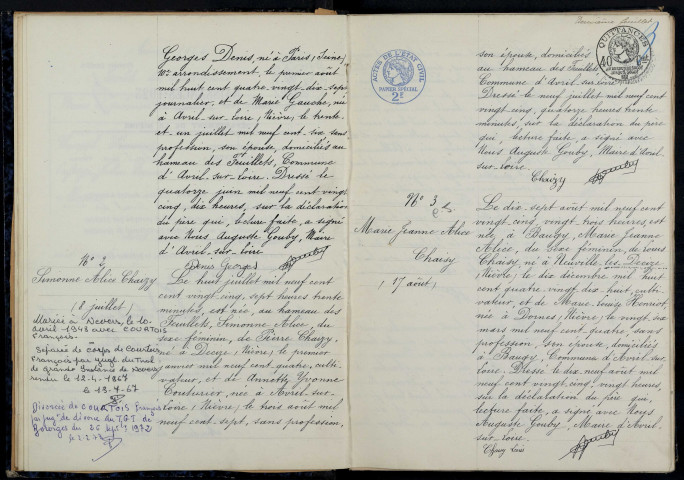 Georges Denis, né à Paris (Seine)
arrondissement, le premier août
mil huit cent quatre vingt-dix-sept
journalier, et de Marie Gauche, née
à Avril-sur-Loire (Nièvre) le trente
et un juillet mil neuf cent six sans
profession, son épouse, domiciliés au
hameau des Feuillets, Commune
d'Avril-sur-Loire. Dressé le
quatorze juin mil neuf cent vingt
cinq, dix heures, sur la déclaration
du père qui, lecture faite, a signé
avec Nous, Auguste Gouby, Maire
d'Avril-sur-Loire
Denis Georges
N° 2
Simonne Alice Chaizy
(8 juillet)
Mariée à Nevers, le 10
avril 1948 avec COURTOIS
François.
Séparée de Corps de Courtois
François par jugt. du Trib.
de Grande Instance de Nevers
rendu le 12-4-1967
le 19-7-67
Divorcée de COURTOIS François
Le huit juillet mil neuf cent
cent vingt-cinq, sept heures trente
minutes, est née, au hameau des
Feuillets, Simonne Alice, du
sexe féminin, de Pierre Chaizy,
né à Decize (Nièvre) le premier
mil neuf cent quatre, culti-
vateur, et de Annette Yvonne
Couturier, née à Avril-sur-
Loire (Nièvre) le trois août mil
neuf cent sept, sans profession,
ACTES DE L'ÉTAT CIVIL
PAPIER SPÉCIAL
2F
QUITTANCES
40
son épouse, domiciliés
au hameau des Feuillets
Commune d'Avril-sur-Loire
Dressé le neuf juillet mil neuf cent
vingt cinq, quatorze heures trente
minutes, sur la déclaration du père
qui, lecture faite, a signé avec
Nous Auguste Gouby, Maire d'Avril-
sur-Loire.
Chaizy
N° 3
Marie Jeanne Alice
Chaisy
(17 août)
Le dix-sept août mil neuf cent
vingt-cinq, vingt-trois heures est
née, à Baugy, Marie Jeanne
Alice, du sexe féminin, de Louis
Chaisy né à Neuville-les-Decize
(Nièvre) le dix décembre mil huit
cent quatre vingt-dix-huit, culti-
vateur, et de Marie-Louise
à Dornes (Nièvre) le vingt-dix
mars mil neuf cent quatre, sans
profession, son épouse, domiciliés
à Baugy, Commune d'Avril-sur-
Loire. Dressé le dix-neuf août mil
neuf cent vingt-cinq, vingt heures,
sur la déclaration du père qui,
lecture faite, a signé avec Nous
Auguste Gouby, Maire d'Avril-
sur-Loire.